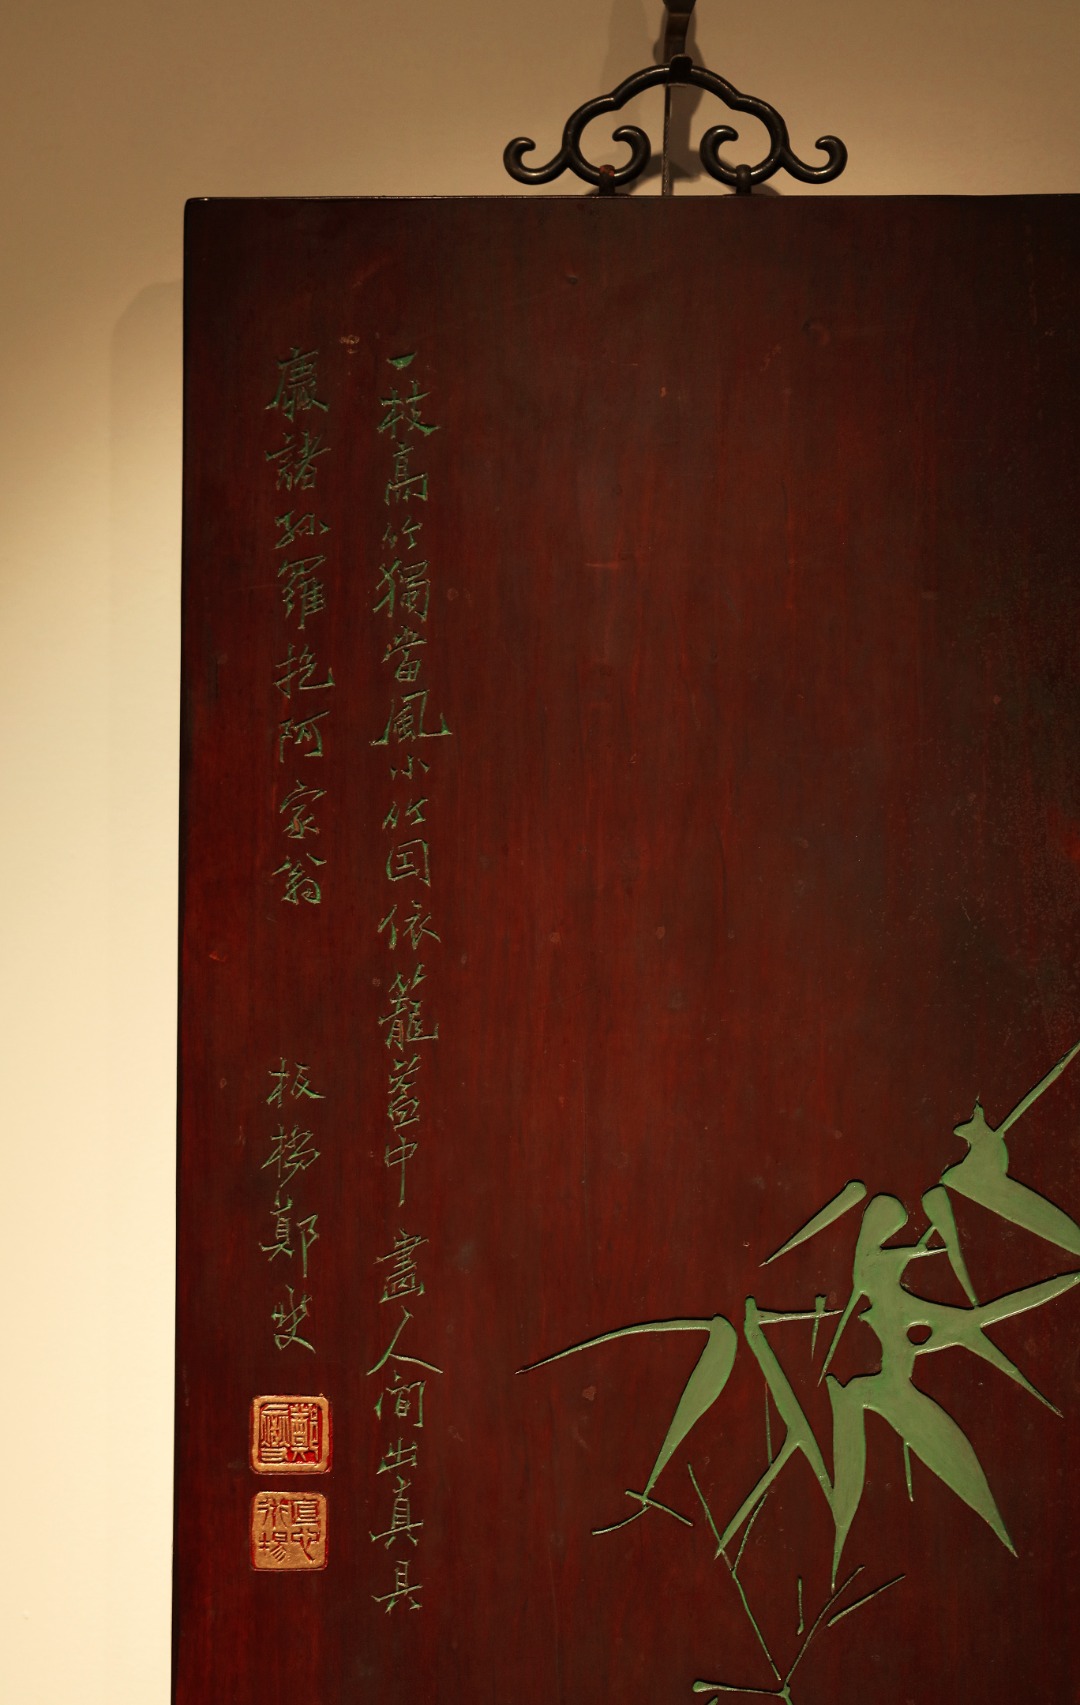 一枝高竹獨當風小竹因依籠蓋中畫人間出真具
康諸孫羅抱阿家翁 板橋鄭燮
鄭燮
直心道場